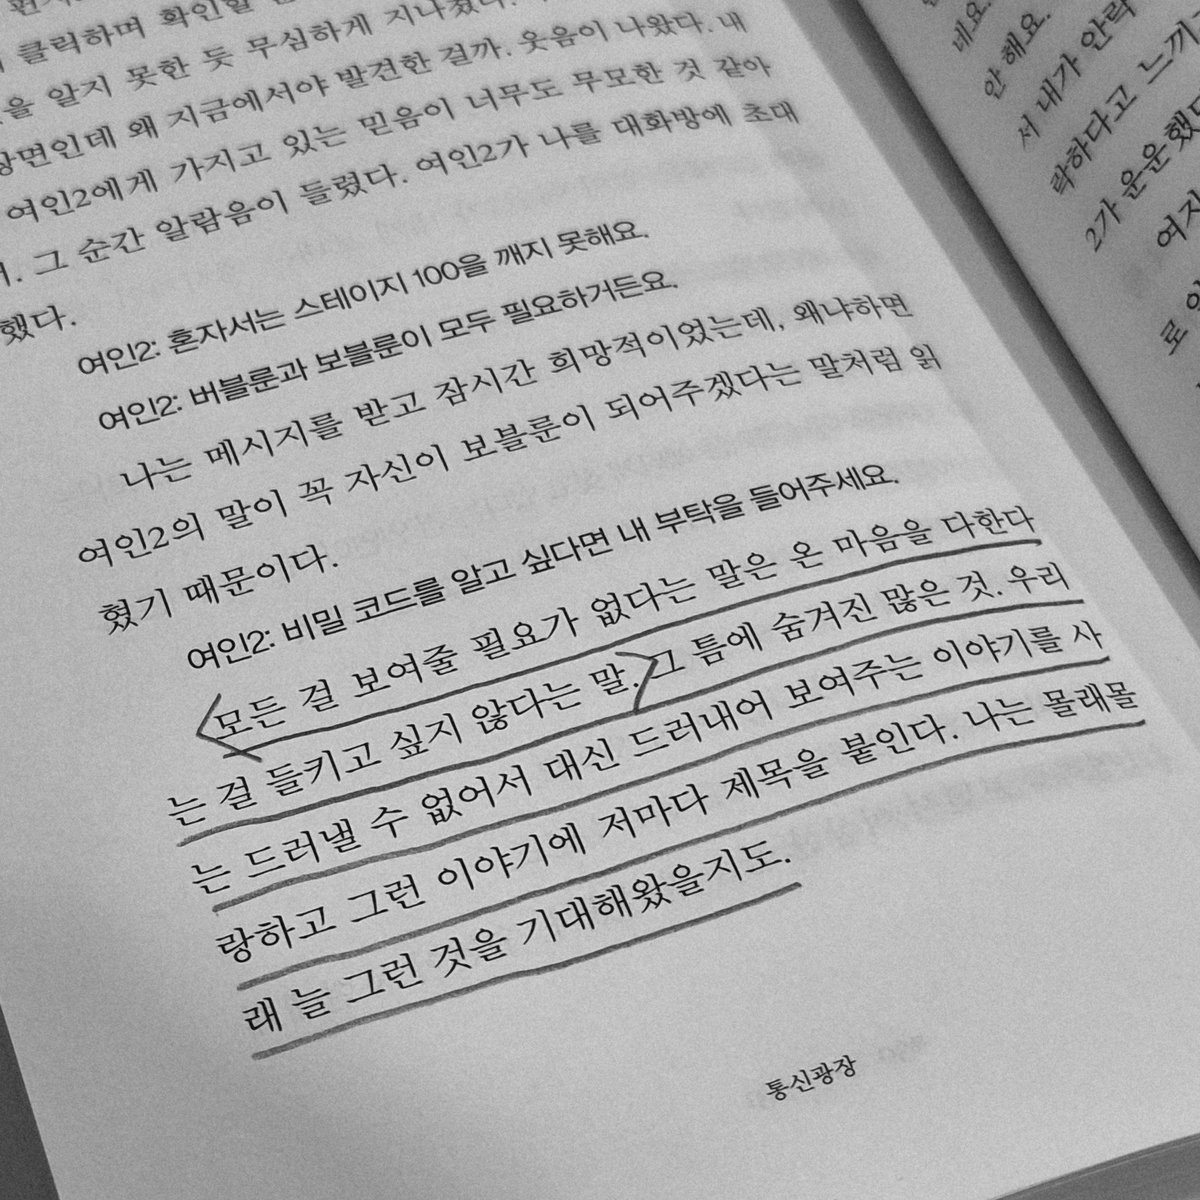 클릭하며 확인할
을 알지 못한 듯 무심하게 지나쳤다.
장면인데 왜 지금에서야 발견한 걸까. 웃음이 나왔다. 내
여인2에게 가지고 있는 믿음이 너무도 무모한 것 같아
. 그 순간 알람음이 들렸다. 여인2가 나를 대화방에 초대
했다.
여인2: 혼자서는 스테이지 100을 깨지 못해요.
여인2: 버블룬과 보블룬이 모두 필요하거든요.
나는 메시지를 받고 잠시간 희망적이었는데, 왜냐하면
여인2의 말이 꼭 자신이 보블룬이 되어주겠다는 말처럼 읽
혔기 때문이다.
여인2: 비밀 코드를 알고 싶다면 내 부탁을 들어주세요.
모든 걸 보여줄 필요가 없다는 말은 온 마음을 다한다
는 걸 들키고 싶지 않다는 말. 그 틈에 숨겨진 많은 것. 우리
는 드러낼 수 없어서 대신 드러내어 보여주는 이야기를 사
랑하고 그런 이야기에 저마다 제목을 붙인다. 나는 몰래몰
래 늘 그런 것을 기대해왔을지도.
통신광장
네요.
안 해요.
서 내가 안락
락하다고 느끼
2가 운운했
여자
로